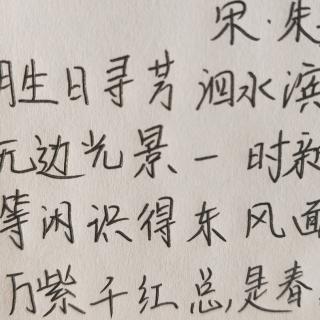 宋·朱
胜日寻芳泗水滨
无边光景一时新
等闲识得东风面
万紫千红总是春